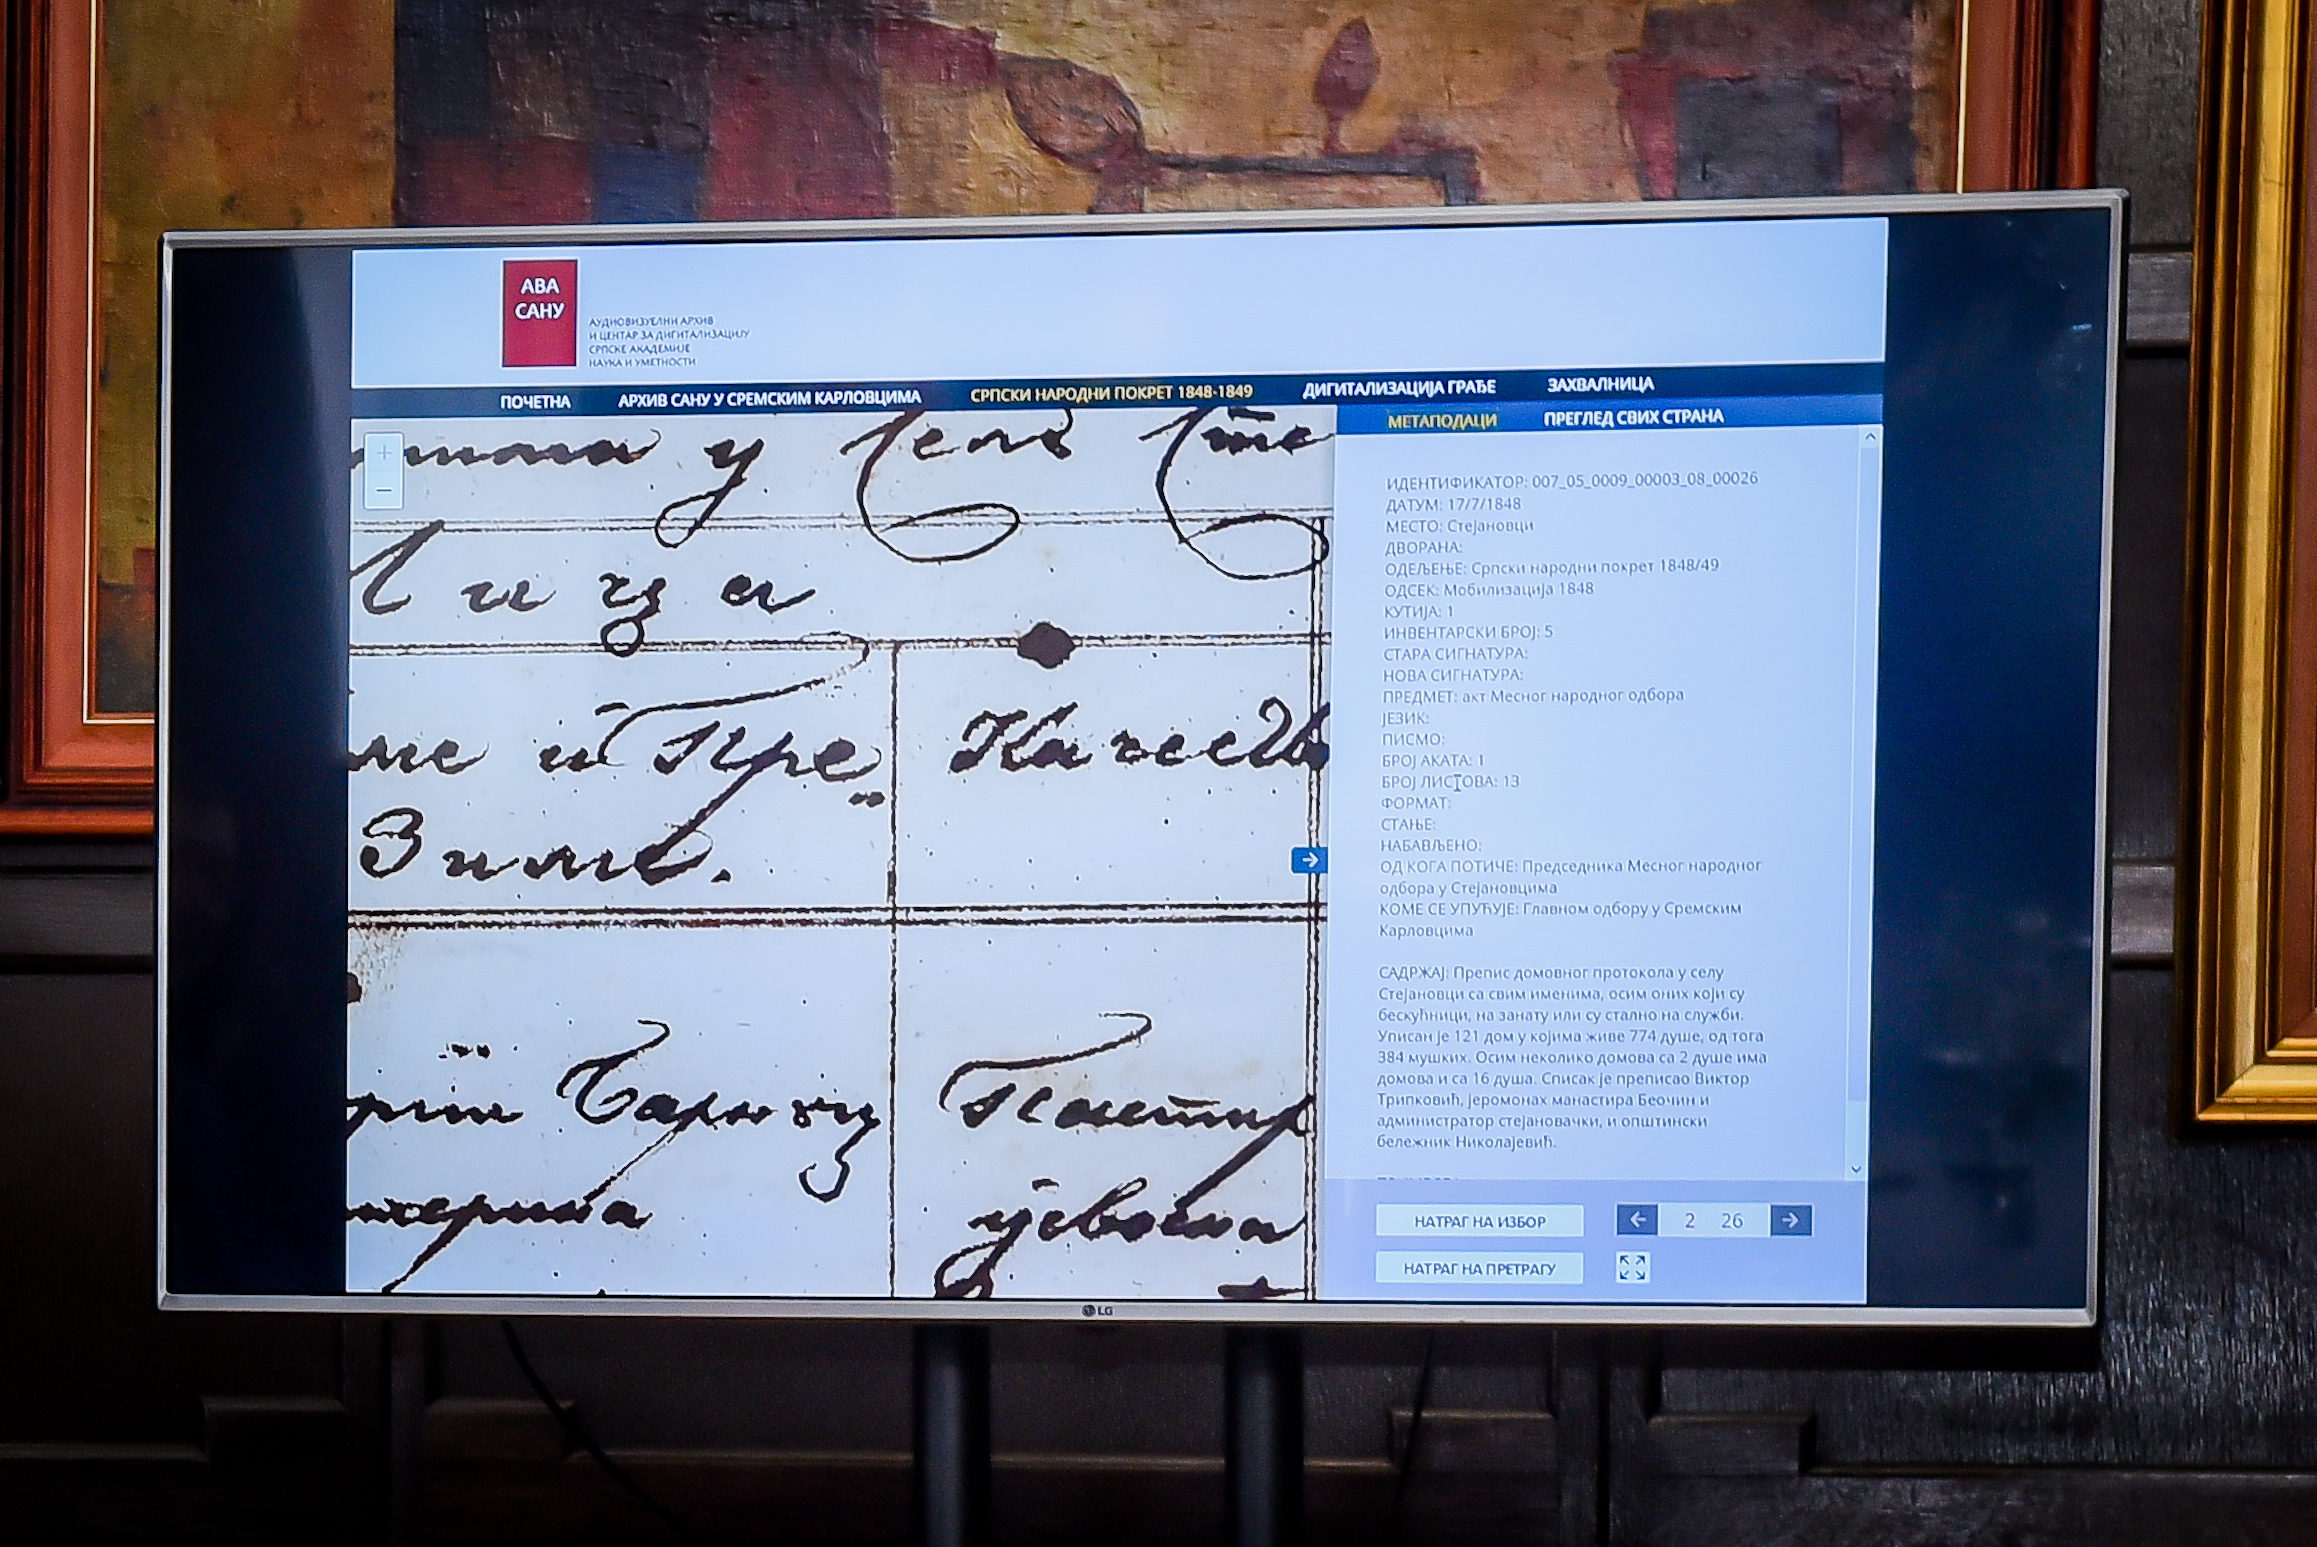 АВА
САНУ
АУДИОВИЗУЕЛНИ АРХИВ
И ЦЕНТАР ЗА ДИГИТАЛИЗАЦИЈУ
СРПСКЕ АКАДЕМИЈЕ
НАУКА И УМЕТНОСТИ
ПОЧЕТНА АРХИВ САНУ У СРЕМСКИМ КАРЛОВЦИМА СРПСКИ НАРОДНИ ПОКРЕТ 1848-1849 ДИГИТАЛИЗАЦИЈА ГРАЂЕ ЗАХВАЛНИЦА
МЕТАПОДАЦИ ПРЕГЛЕД СВИХ СТРАНА
у
и Пре„
Зиме.
ИДЕНТИФИКАТОР: 007_05_0009_00003_08_00026
ДАТУМ: 17/7/1848
МЕСТО: Стејановци
ДВОРАНА:
ОДЕЉЕЊЕ: Српски народни покрет 1848/49
ОДСЕК: Мобилизација 1848
КУТИЈА: 1
ИНВЕНТАРСКИ БРОЈ: 5
СТАРА СИГНАТУРА:
НОВА СИГНАТУРА:
ПРЕДМЕТ: акт Месног народног одбора
ЈЕЗИК:
ПИСМО:
БРОЈ АКАТА: 1
БРОЈ ЛИСТОВА: 13
ФОРМАТ:
СТАЊЕ:
НАБАВЉЕНО:
ОД КОГА ПОТИЧЕ: Председника Месног народног
одбора у Стејановцима
КОМЕ СЕ УПУЋУЈЕ: Главном одбору у Сремским
Карловцима
САДРЖАЈ: Препис домовног протокола у селу
Стејановци са свим именима, осим оних који су
бескућници, на занату или су стално на служби.
Уписан је 121 дом у којима живе 774 душе, од тога
384 мушких. Осим неколико домова са 2 душе има
домова и са 16 душа. Списак је преписао Виктор
Трипковић, јеромонах манастира Беочин и
администратор стејановачки, и општински
бележник Николајевић.
НАТРАГ НА ИЗБОР 2 26
НАТРАГ НА ПРЕТРАГУ
LG